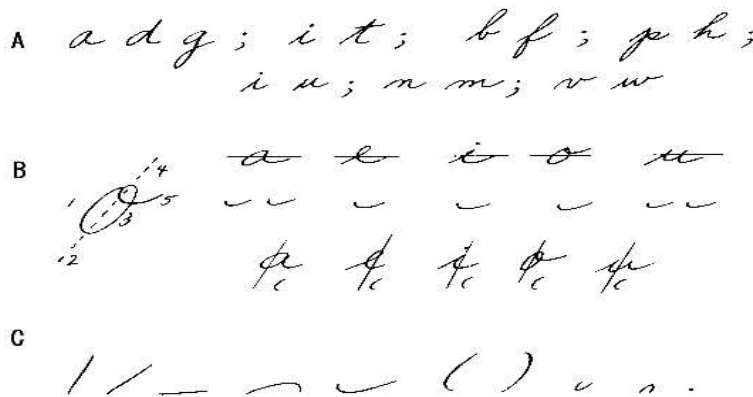 A a d g ; i t ; b f ; p h ;
i u ; n m ; v w
B a e i o u
1 2 3 4 5
a e i o u
C